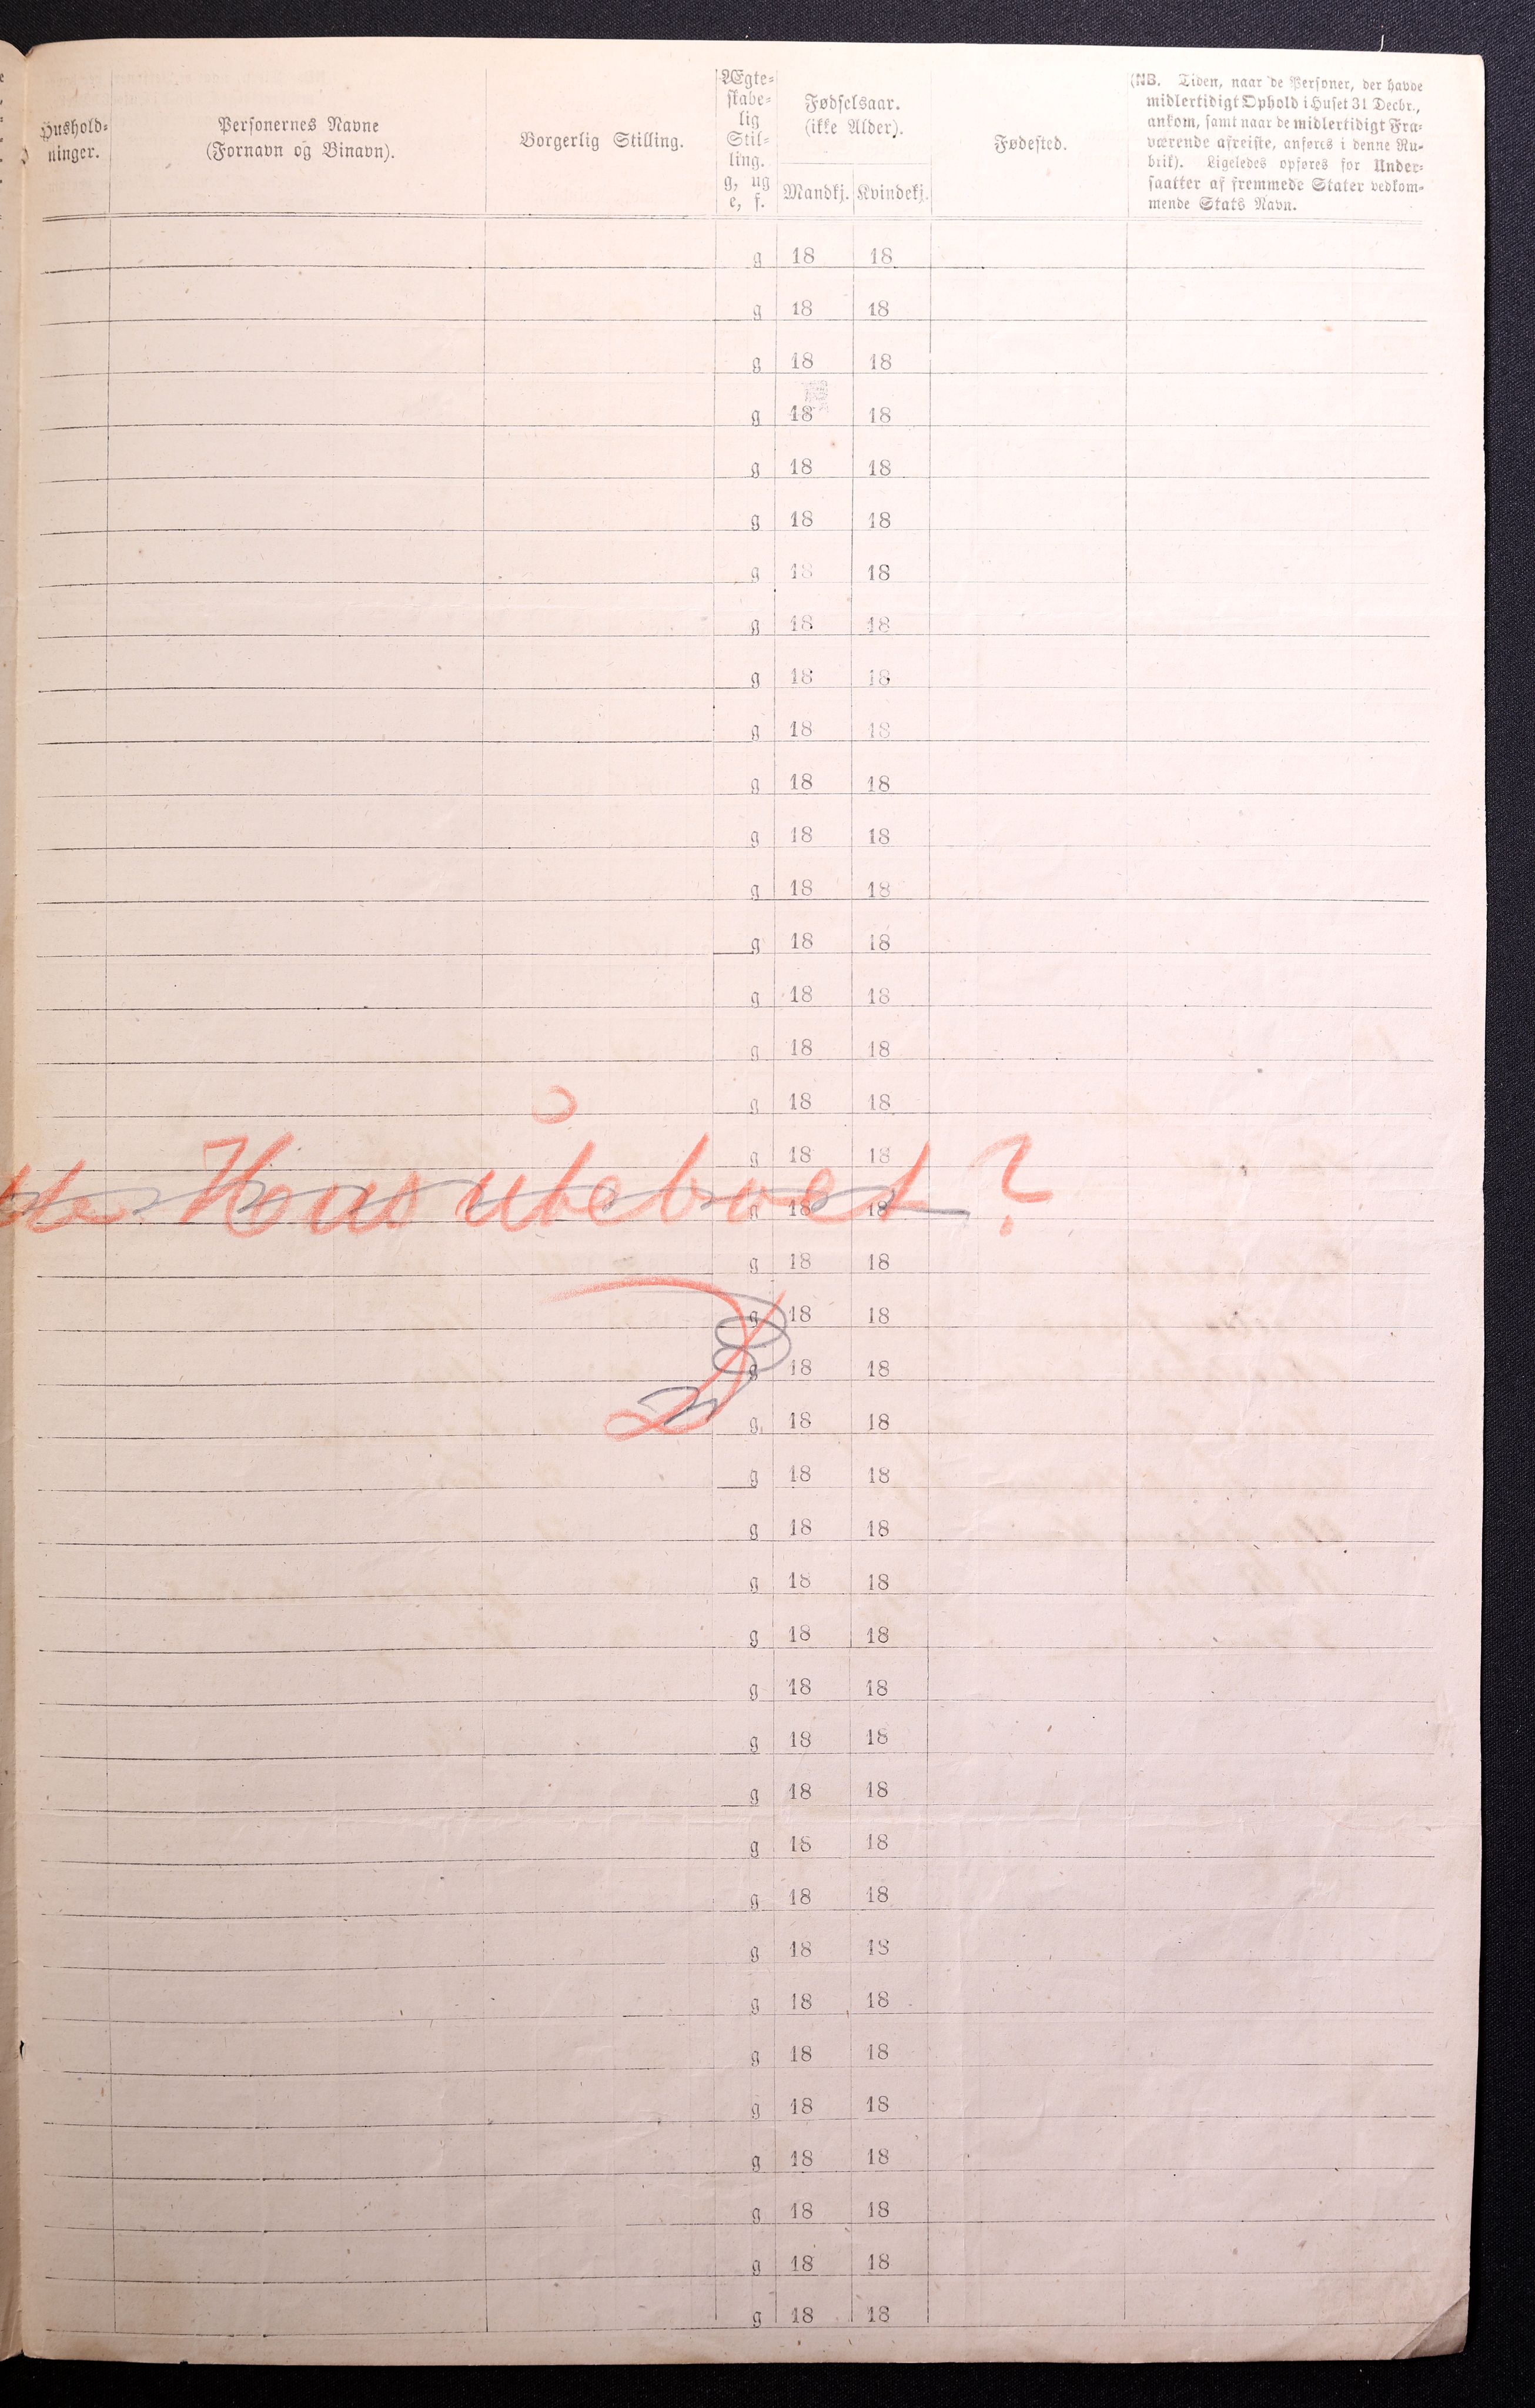 Hushold-
ninger.
Personernes Navne
(Fornavn og Binavn).
Borgerlig Stilling.
Ægte-
skabe-
lig
Stil-
ling.
g, ug
e, f.
Fødselsaar.
(ikke Alder).
Mandkj. Kvindekj.
Fødested.
(NB. Tiden, naar de Personer, der havde
midlertidigt Ophold i Huset 31 Decbr.,
ankom, samt naar de midlertidigt Fra-
værende afreiste, anføres i denne Ru-
brik). Ligeledes opføres for Under-
saatter af fremmede Stater vedkom-
mende Stats Navn.
g 18 18
g 18 18
g 18 18
g 18 18
g 18 18
g 18 18
g 18 18
g 18 18
g 18 18
g 18 18
g 18 18
g 18 18
g 18 18
g 18 18
g 18 18
g 18 18
g 18 18
g 18 18
Hus ubeboet?
g 18 18
g 18 18
g 18 18
g 18 18
g 18 18
g 18 18
g 18 18
g 18 18
g 18 18
g 18 18
g 18 18
g 18 18
g 18 18
g 18 18
g 18 18
g 18 18
g 18 18
g 18 18
g 18 18
g 18 18
g 18 18
g 18 18